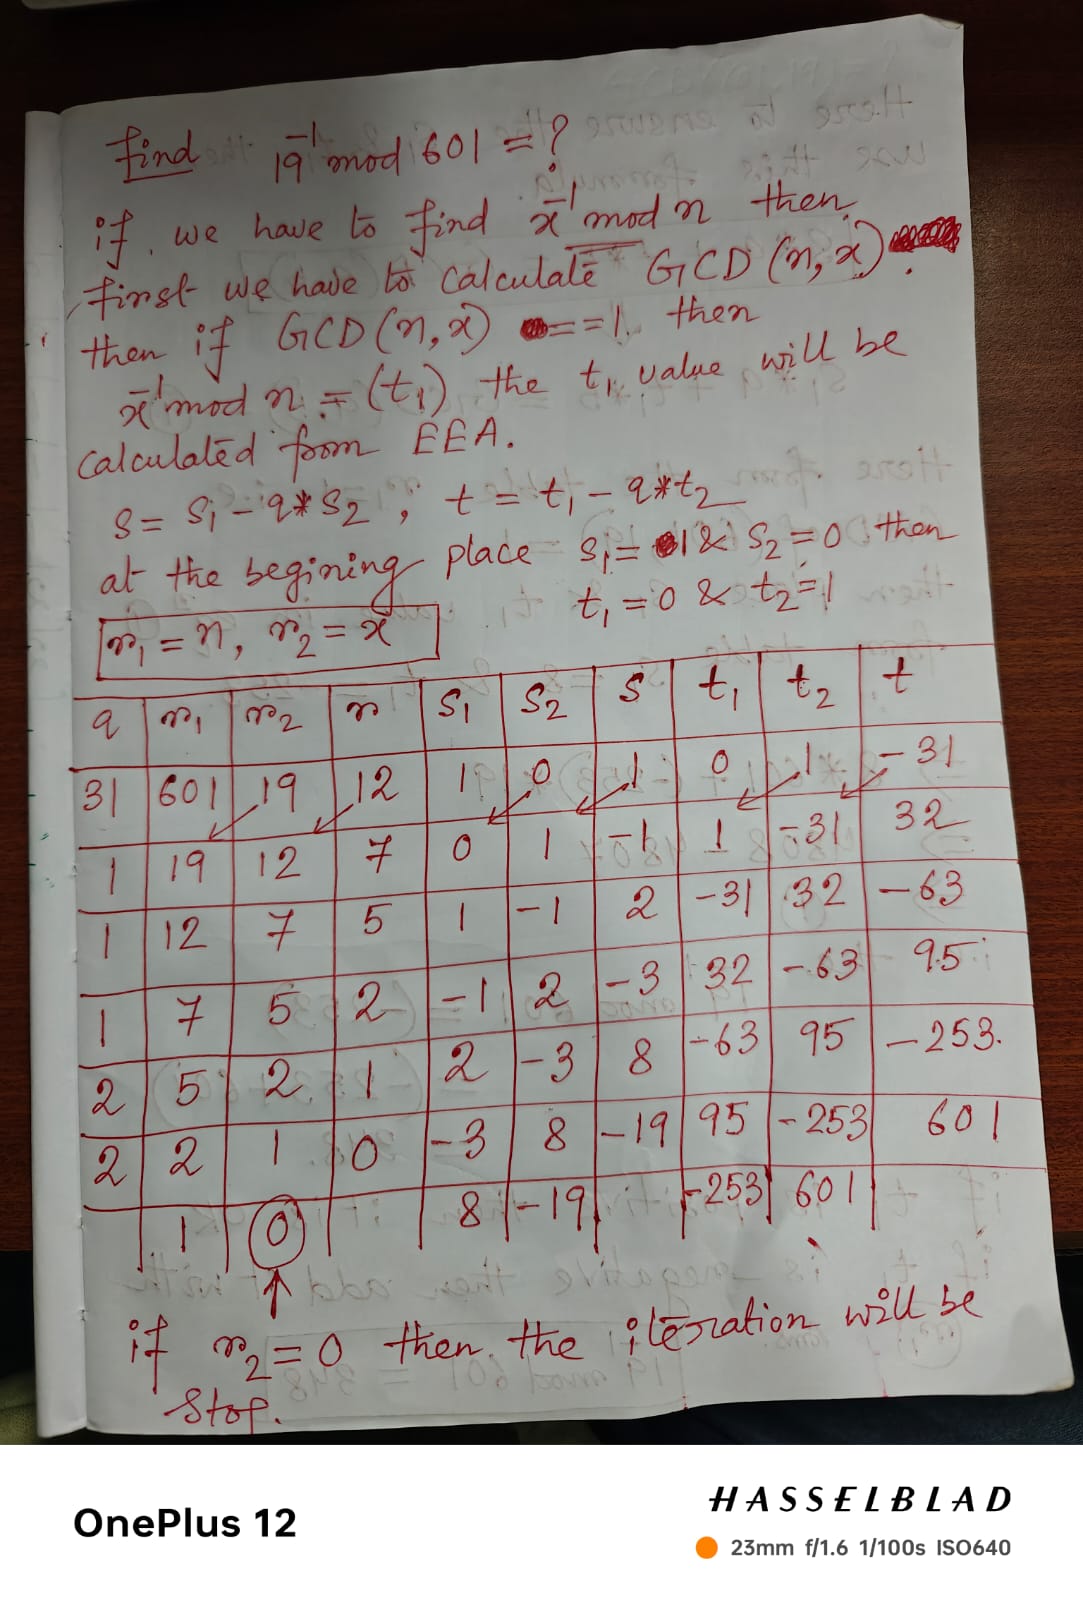 find 19⁻¹ mod 601 = ?
if we have to find x⁻¹ mod n then
first we have to calculate GCD (n, x).
then if GCD (n, x) == 1. then
x⁻¹ mod n = (t₁) the t₁ value will be
calculated from EEA.
s = s₁ - q * s₂ ; t = t₁ - q * t₂
at the begining place s₁ = 1 & s₂ = 0 then
t₁ = 0 & t₂ = 1
r₁ = n, r₂ = x
q r₁ r₂ r s₁ s₂ s t₁ t₂ t
31 601 19 12 1 0 1 0 1 -31
1 19 12 7 0 1 -1 1 -31 32
1 12 7 5 1 -1 2 -31 32 -63
1 7 5 2 -1 2 -3 32 -63 95
2 5 2 1 2 -3 8 -63 95 -253.
2 2 1 0 -3 8 -19 95 -253 601
1 0 8 -19 -253 601
if r₂ = 0 then the iteration will be
stop.
OnePlus 12
HASSELBLAD
23mm f/1.6 1/100s ISO640